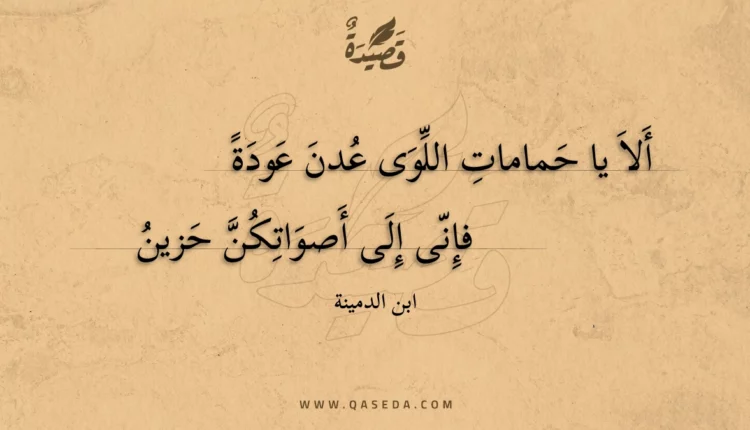 قَصِيْدَةٌ
أَلاَ يا حَماماتِ اللِّوَى عُدنَ عَودَةً
فإِنّى إِلَى أَصوَاتِكُنَّ حَزينُ
ابن الدمينة
WWW.QASEDA.COM